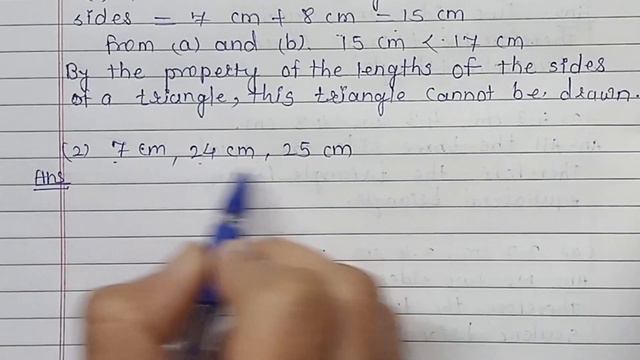 sides = 7 cm + 8 cm = 15 cm
from (a) and (b). 15 cm < 17 cm
By the property of the lengths of the sides
of a triangle, this triangle cannot be drawn.
(2) 7 cm, 24 cm, 25 cm
Ans